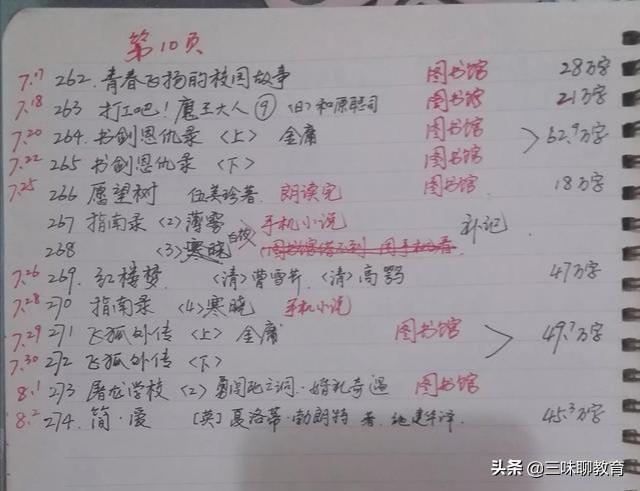 第10页
7.17 262. 青春飞扬的校园故事 图书馆 28万字
7.18 263 打工吧!魔王大人⑨ (日)和原聪司 图书馆 21万字
7.20 264. 书剑恩仇录〈上〉 金庸 图书馆 >62.9万字
7.22 265 书剑恩仇录〈下〉 图书馆
7.25 266 愿望树 伍美珍著. 朗读完 图书馆 18万字
267 指南录〈2〉薄雾 手机小说 补记
268 〈3〉寒晓 (图书馆借不到 用手机看
7.26 269. 红楼梦 〈清〉曹雪芹.〈清〉高鹗 47万字
7.28 270 指南录〈4〉寒晓 手机小说
7.29 271 飞狐外传〈上〉金庸 图书馆 >49.7万字
7.30 272 飞狐外传〈下〉
8.1 273 屠龙学校〈2〉勇闯死亡洞·婚礼奇遇 图书馆
8.2 274. 简·爱 [英]夏洛蒂·勃朗特 著. 45.3万字
头条 @三味聊教育